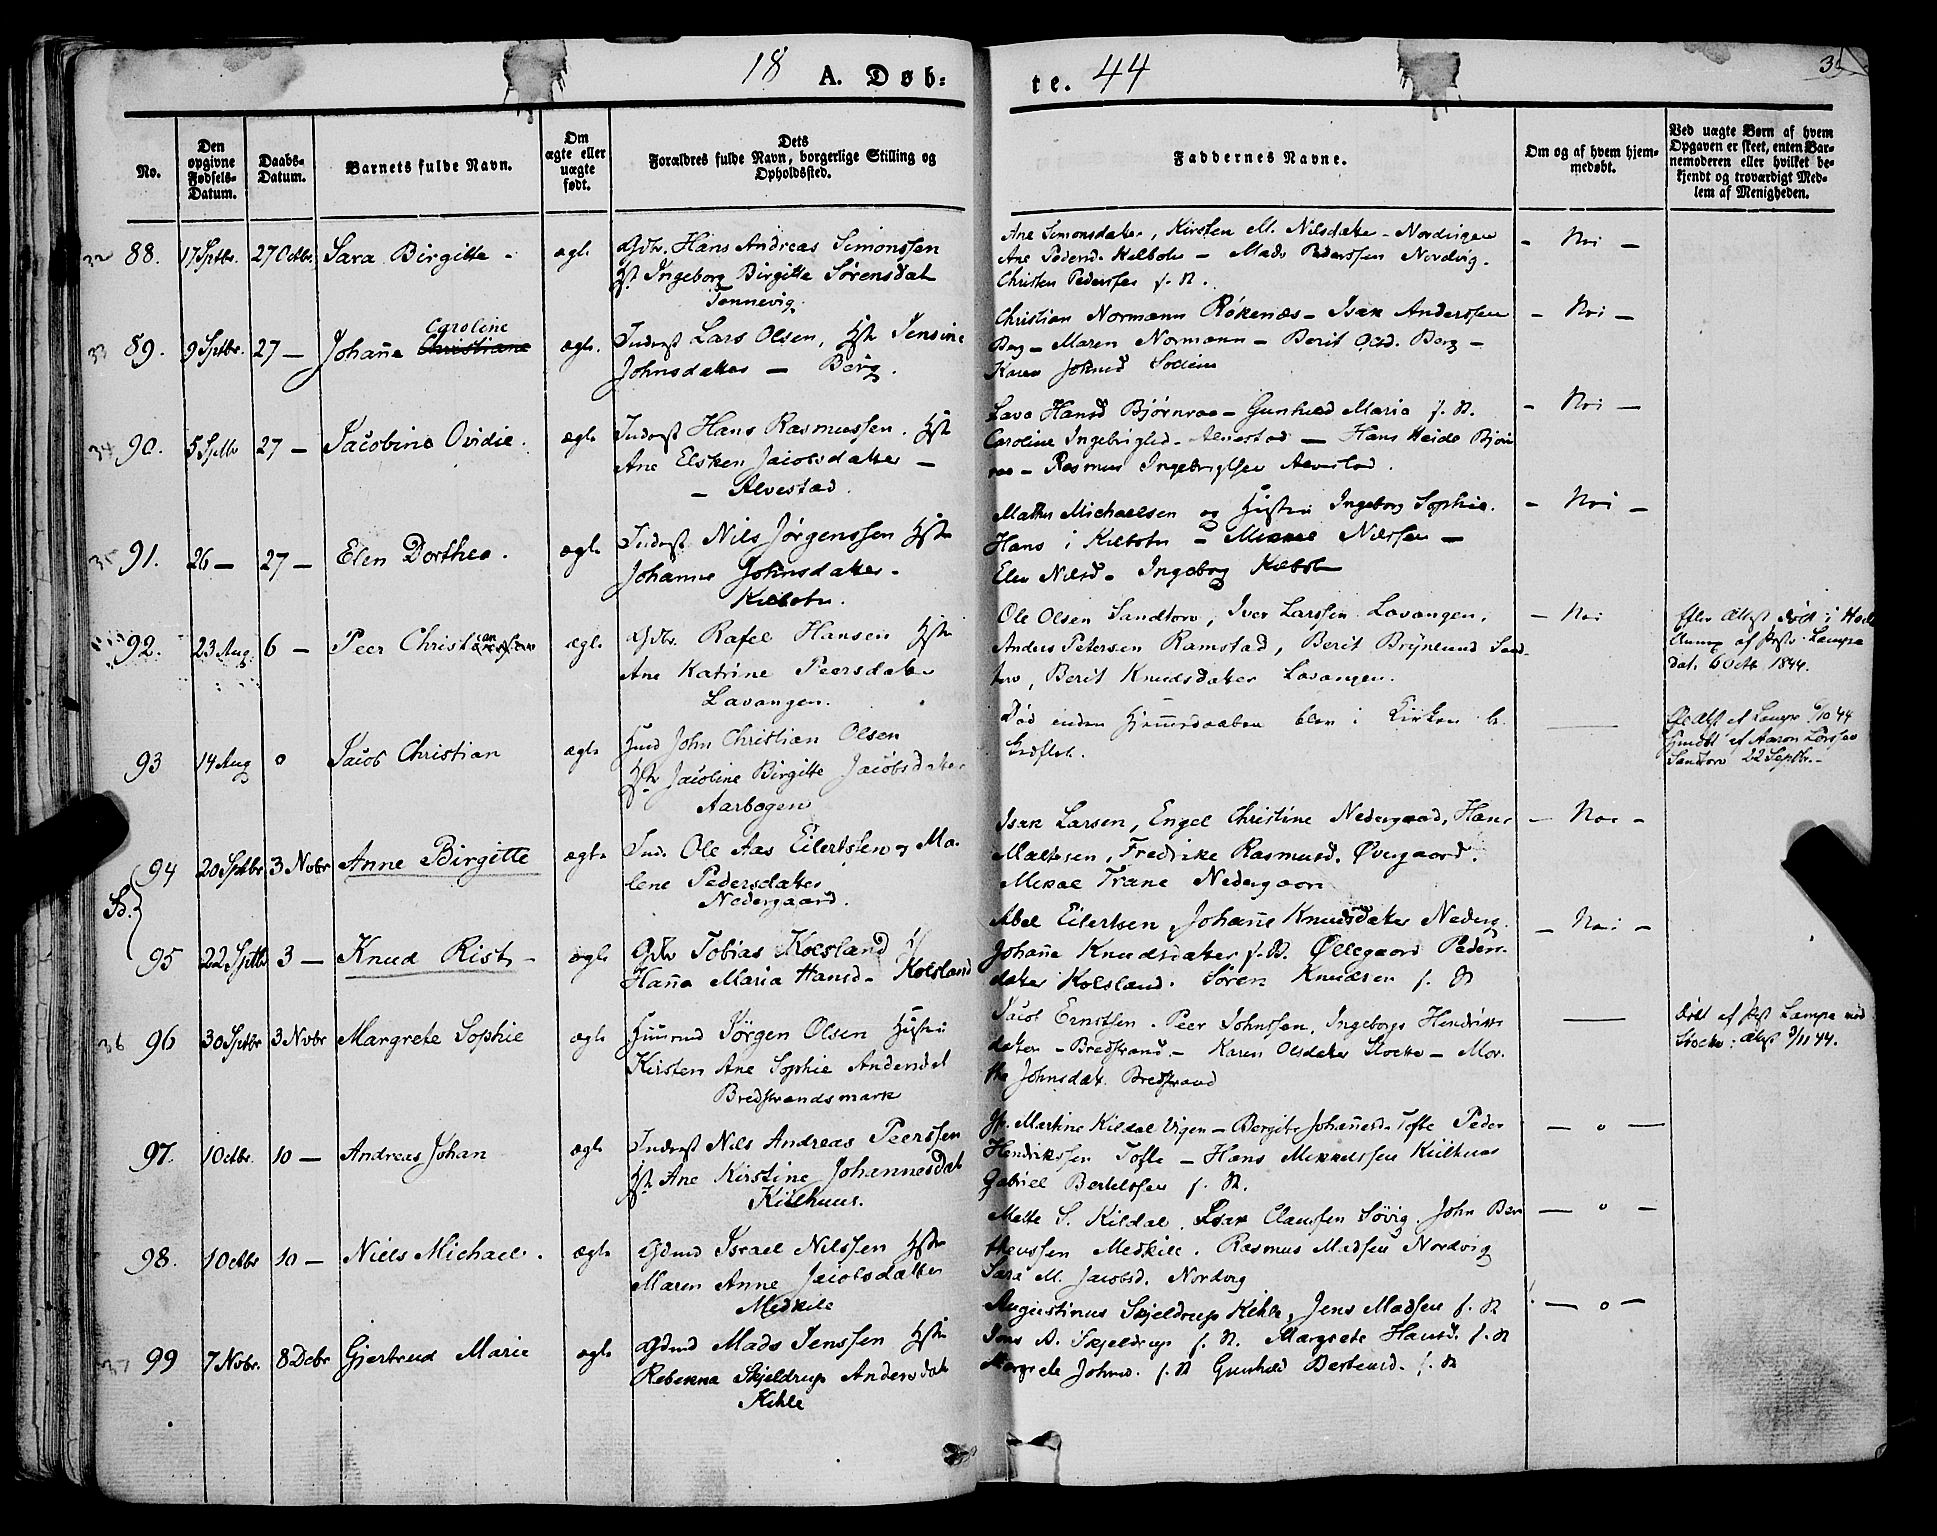 18 A. Døb: te. 44
No.
Den opgivne Fødsels-Datum.
Daabs-Datum.
Barnets fulde Navn.
Om ægte eller uægte født.
Dets Forældres fulde Navn, borgerlige Stilling og Opholdssted.
Faddernes Navne.
Om og af hvem hjemmedøbt.
Ved uægte Børn af hvem Opgaven er skeet, enten Barnemoderen eller hvilket bekjendt og troværdigt Medlem af Menigheden.
32 88. 17 Septbr. 27 Octbr. Sara Birgitte - ægte
Gdbr. Hans Andreas Simonssen
Hst Ingeborg Birgitte Sørensdat
Tennevig.
Ane Simonsdatter, Kirsten M. Nilsdatter - Nordvigen
Ane Pedersd. Kilboten - Mads Pederssen Nordvig.
Christen Pederssen s. st.
- Nei -
33 89. 9 Septbr. 27 - Johañe Christiane Caroline ægte.
Inderst Lars Olsen, Hstr Jensine
Johnsdatter - Berg.
Christian Normann Røkenæs - Isak Anderssen
Berg - Maren Normann - Berit Olsd. Berg -
Karen Johnsd
- Nei -
34 90. 5 Septbr 27 - Jacobine Ovidie. ægte
Inderst Hans Rasmussen. Hstr
Ane Elsken Jacobsdatter -
- Alvestad.
Hansd Bjørnraa - Gunhild Maria s. st.
Caroline Ingebrigtsd. Alvestad - Hans Heide Bjørn
raa - Rasmus Ingebrigtsen Alvestad.
- Nei -
35 91. 26 - 27 - Elen Dorthea. ægte
Inderst Nils Jørgenssen Hstr
Johanne Johnsdatter -
Kilboten.
Mathis Michaelsen og Hustru Ingeborg Sophia.
Hans i Kilboten - Mikkel Nilssen -
Elen Nilsd - Ingeborg Kilboten
- Nei -
92. 23 Aug. 6 - Peer Christian ægte
Gdbr. Rafel Hansen Hstr
Ane Katrine Peersdatter
Lavangen.
Ole Olsen Sandtorv, Iver Larssen Lavangen,
Anders Petersen Ramstad, Berit Brynelund Sand-
torv, Berit Knudsdatter Lavangen.
- Nei
Efter Attest døbt i
af Præst Lampe
dat. 6 Octbr 1844.
93 14 Aug 0 Jacob Christian ægte
Hmd John Christian Olsen
Hstr Jacobine Birgitte Jacobsdatter
Aarbogen
Død inden Hjemmedaaben blev i Kirken be
kræftet.
Attest af Lampe 6/10 44
Hmdbt af Aaron Larssen
Sandtorv 22 Septbr. -
Sd.
94 20 Septbr 3 Novbr Anne Birgitte ægte
Ind. Ole Aas Eilertsten og Ma-
lene Pedersdatter
Nedergaard.
Isak Larsen, Engel Christine Nedergaard, Hans
Mathesen, Fredrike Rasmusd. Øvergaard.
Mikal Trane Nedergaard
- Nei -
95 22 Septbr 3 - Knud Rist - ægte
Gdbr Tobias Kolsland H
Hañe Maria Hansd - Kolsland
Abel Eilertsen, Johañe Knudsdatter Nederg.
Johañe Knudsdatter s. st. Ollegaard Peders-
datter Kolsland. Søren Knudsen s. st
- Nei -
36 96 30 Septbr 3 Novbr Margrete Sophie ægte
Huusmd Jørgen Olsen Hustru
Kirsten Ane Sophie Andersdat
Bredstrandsmark
Jacob Ernstsen. Peer Johnssen, Ingeborg Hendriks
datter - Bredstrand - Karen Olsdatter Stocke - Mar-
the Johnsdat. Bredstrand
Døbt af Præst Lampe ved
Stocke: Attest 9/11 44.
97. 1 Octbr. 10 - Andreas Johan ægte
Inderst Nils Andreas Peerssen
Hst Ane Kirstine Johannesdat
Kilhuus.
Jfr. Martine Kildal Vigen - Bergite Johañesd. Tofte Peder
Hendrikssen Tofte - Hans Mikkelssen Kilhuus
Gabriel Bertelssen s. st.
- 0 -
98. 1 Octbr 10 - Niels Michael. ægte
Gdmd Israel Nilssen Hstr
Maren Anne Jacobsdatter
Medkile
Mette S. Kildal. Isak Claussen Søvig. John Ber
theussen Medkile. Rasmus Madsen Nordvig
Sara M. Jacobsd. Nordvig
- 0 -
37 99 7 Novbr. 8 Decbr Gjertrud Marie ægte
Gdmd Mads Jenssen Hstr
Rebekka Skjeldrup Andersdat
Kihle
Augustinus Skjeldrup Kihle, Jens Madsen s. st
Jens A. Skjeldrup s. st. Margrete Hansd. s. st
Margrete Johnsd. s. st Gunhild Bertheusd. s. st
- 0 -